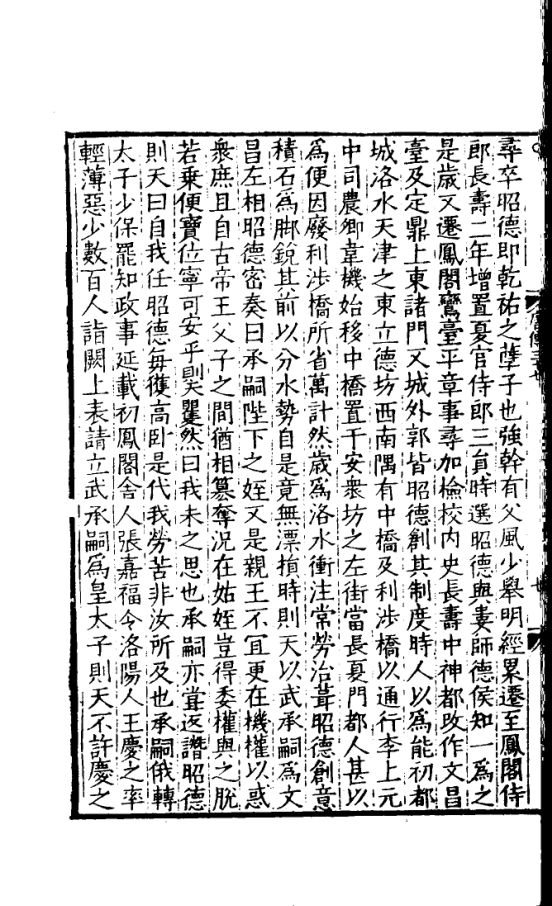 尋卒昭德即乾祐之孽子也強幹有父風少舉明經累遷至鳳閣侍
郎長壽二年增置夏官侍郎三員時選昭德與婁師德侯知一爲之
是歲又遷鳳閣鸞臺平章事尋加檢校内史長壽中神都改作文昌
臺及定鼎上東諸門又城外郭皆昭德創其制度時人以爲能初都
城洛水天津之東立德坊西南隅有中橋及利涉橋以通行李上元
中司農卿韋機始移中橋置于安衆坊之左街當長夏門都人甚以
爲便因廢利涉橋所省萬計然歲爲洛水衝注常勞治葺昭德創意
積石爲脚銳其前以分水勢自是竟無漂損時則天以武承嗣爲文
昌左相昭德密奏曰承嗣陛下之姪又是親王不宜更在機權以惑
衆庶且自古帝王父子之間猶相篡奪況在姑姪豈得委權與之脫
若乗便寶位寧可安乎則天矍然曰我未之思也承嗣亦甞返譖昭德
則天曰自我任昭德每獲高卧是代我勞苦非汝所及也承嗣俄轉
太子少保罷知政事延載初鳳閣舎人張嘉福令洛陽人王慶之率
輕薄惡少數百人詣闕上表請立武承嗣爲皇太子則天不許慶之